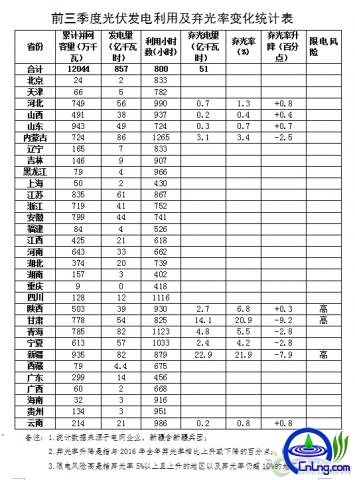 前三季度光伏发电利用及弃光率变化统计表
省份 累计并网容量(万千瓦) 发电量(亿千瓦时) 利用小时数(小时) 弃光电量(亿千瓦时) 弃光率(%) 弃光率升降(百分点) 限电风险
合计 12044 857 800 51
北京 24 2 833
天津 66 5 782
河北 749 56 990 0.7 1.3 +0.8
山西 491 38 937 0.2 0.4 +0.4
山东 943 49 724 0.3 0.7 +0.7
内蒙古 724 86 1265 3.1 3.4 -2.5
辽宁 165 7 833
吉林 146 9 907
黑龙江 79 4 966
上海 50 2 430
江苏 835 61 867
浙江 719 41 752
安徽 799 44 741
福建 84 4 526
江西 425 21 618
河南 643 33 662
湖北 374 20 739
湖南 157 3 402
重庆 9 0 418
四川 128 12 1116
陕西 503 39 930 2.7 6.8 +0.3 高
甘肃 778 54 825 14.1 20.9 -9.2 高
青海 785 82 1123 4.8 5.5 -2.8
宁夏 613 57 1033 2.4 4.2 -2.8
新疆 935 82 879 22.9 21.9 -7.9 高
西藏 79 4.4 675
广东 299 14 456
广西 60 2 668
海南 32 3 916
贵州 134 3 951
云南 214 21 986 0.2 0.8 +0.8
备注：1.统计数据来源于电网企业，新疆含新疆兵团；
2.弃光率升降是指与2016年全年弃光率相比上升或下降的百分点；
3.限电风险高是指弃光率5%以上且上升的地区以及弃光率仍超10%的
CnLng.com